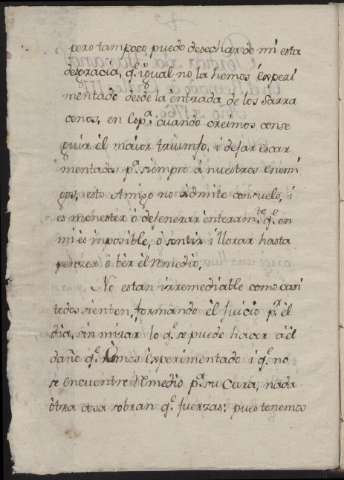 pero tampoco puedo desechar de mi esta
desgracia, q.e igual no la hemos experi
mentado desde la entrada de los Sarra
cenos, en Esp.a, cuando creimos conse
guir el maior triumfo, i dejar escar
mentados p.a siempre a nuestros enemi
gos, esto Amigo no admite consuelo, i
es menester ó dejenerar enteram.te q.e en
mi es imposible, ó sentir i llorar hasta
perecer ó ver el Remedio.
No es tan irremediable como casi
todos sienten, formando el juicio p.r el
dia, sin mirar lo q.e se puede hacer a el
daño q.e hemos experimentado i q.e no
se encuentre Remedio p.a su Cura, nada
otra cosa sobran q.e fuerzas; pues tenemos